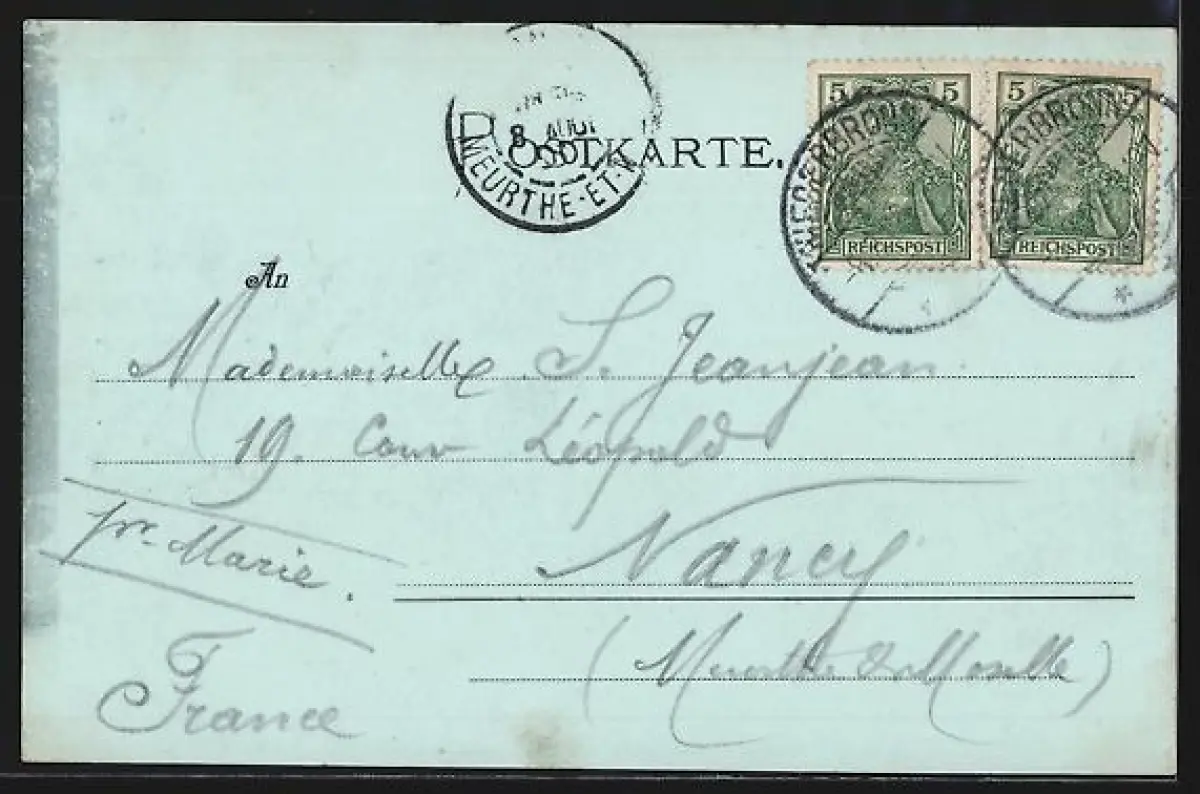 POSTKARTE.
8 AOUT
MEURTHE-ET-M
5 5
REICHSPOST
5 5
REICHSPOST
NIEDERBRONN
NIEDERBRONN
An
Mademoiselle S. Jeanjean
19. Cour Léopold
Nancy
pr. Marie.
(Meurthe & Moselle)
France